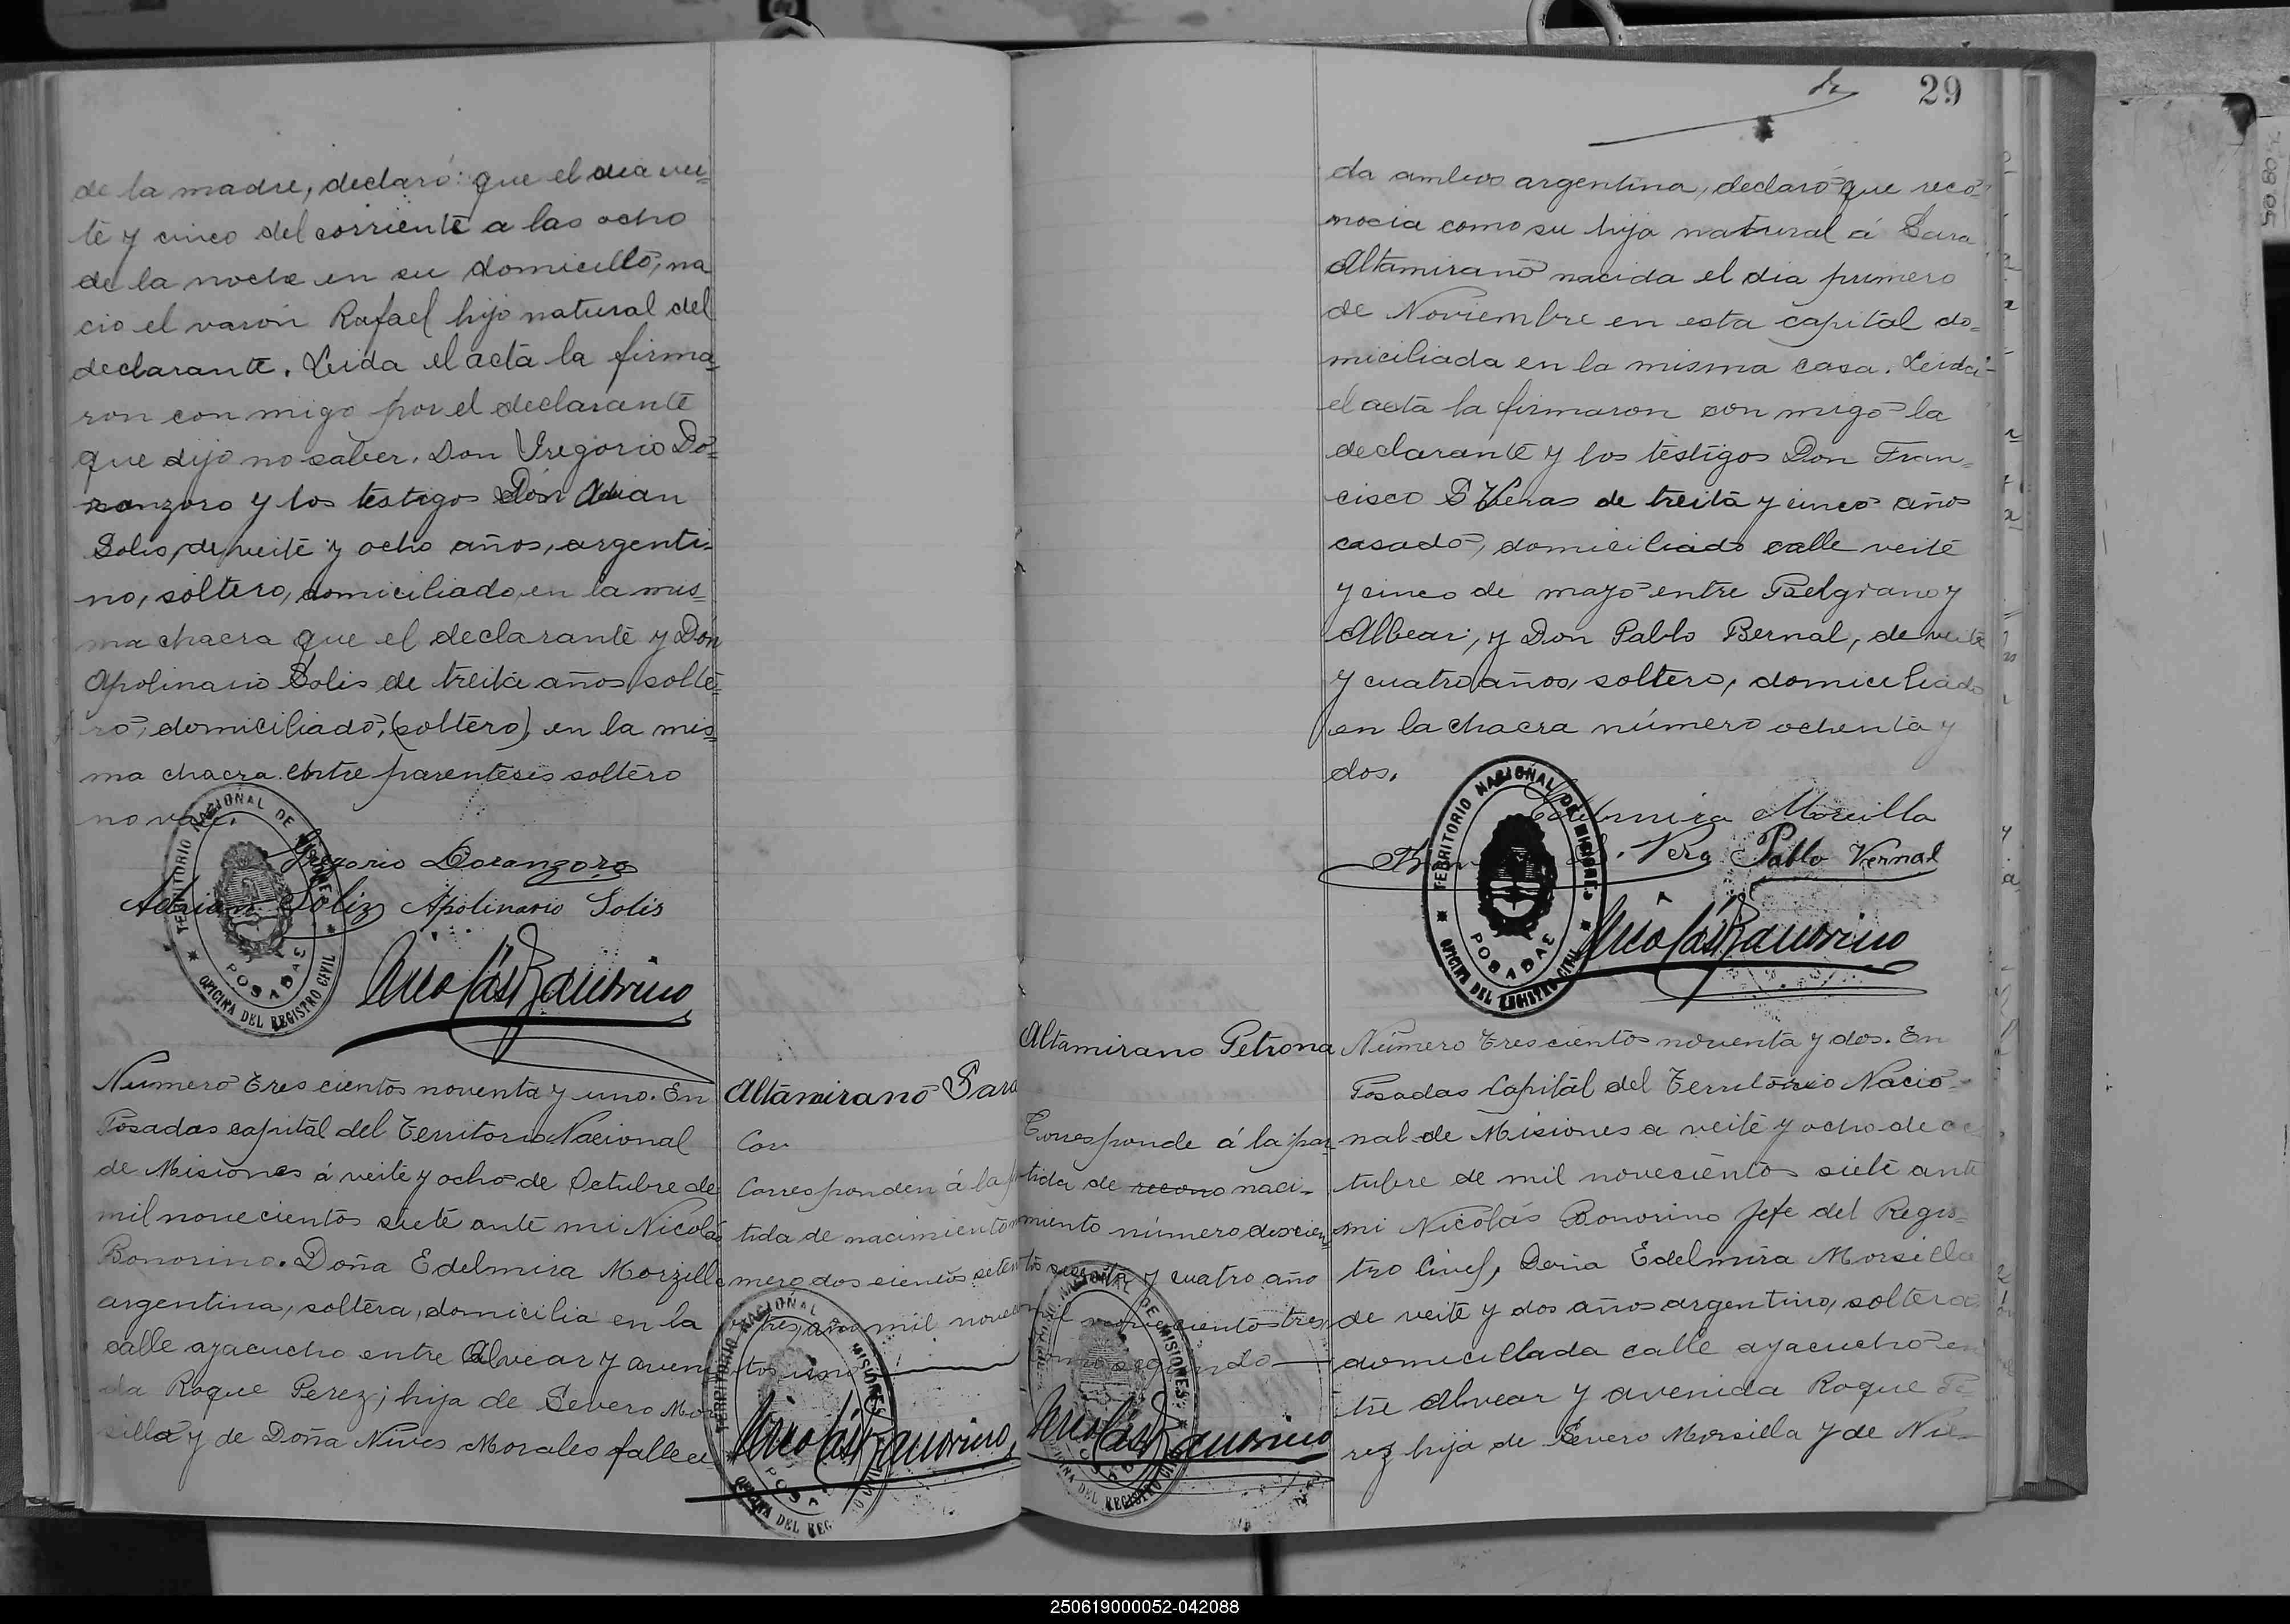 de la madre, declaró: que el dia vei=
te y cinco del corriente a las ocho
de la noche en su domicilio, na
cio el varon Rafael hijo natural del
declarante. Leida el acta la firma=
ron con migo por el declarante
que dijo no saber. Don Gregorio Do=
ranzoro y los testigos Don Adrian
Solis, de veite y ocho años, argenti=
no, soltero, domiciliado, en la mis=
ma chacra que el declarante y Don
Apolinario Solis de treita años, solte=
ro, domiciliado, (soltero), en la mis=
ma chacra. Entre parentesis soltero
no vale.
Gregorio Doranzoro
Adrian Soliz Apolinario Solis
Nicolás Bonorino
TERRITORIO NACIONAL DE MISIONES
POSADAS
OFICINA DEL REGISTRO CIVIL
Altamirano Sara
Con
Corresponden á la
tida de nacimiento
mero dos cientos
y tres, año mil
tos uno
Nicolás Bonorino
Numero Trescientos noventa y uno. En
Posadas capital del Territorio Nacional
de Misiones á veite y ocho de Octubre de
mil novecientos siete ante mi Nicolás
Bonorino. Doña Edelmira Morzilla
argentina, soltera, domicilia en la
calle ayacucho entre Alvear y aveni
da Roque Perez; hija de Severo Mor
silla y de Doña Nives Morales falleci
29
da ambos argentina, declaró que reco=
nocia como su hija natural á Sara
Altamirano nacida el dia primero
de Noviembre en esta capital do=
miciliada en la misma casa. Leida
el acta la firmaron con migo la
declarante y los testigos Don Fran=
cisco S Veras de treita y cinco años
casado, domiciliado calle veite
y cinco de mayo entre Belgrano y
Albear, y Don Pablo Bernal, de veite
y cuatro años, soltero, domiciliado
en la chacra número ochenta y
dos.
Edelmira Morcilla
S. Vera Pablo Vernal
Nicolás Bonorino
TERRITORIO NACIONAL DE MISIONES
POSADAS
OFICINA DEL REGISTRO CIVIL
Altamirano Petrona
Corresponde á la par
tida de recono naci-
miento número doscien
tos sesenta y cuatro año
mil novecientos tres
tomo segundo
Nicolás Bonorino
Número Trescientos noventa y dos. En
Posadas Capital del Territorio Nacio-
nal de Misiones a veite y ocho de oc
tubre de mil novecientos siete ante
mi Nicolás Bonorino Jefe del Regis=
tro Civil, Doña Edelmira Morsilla
de veite y dos años argentina, soltera,
domicillada calle ayacucho en
tre Alvear y avenida Roque Pe
rez hija de Severo Morsilla y de Nie=
250619000052-042088